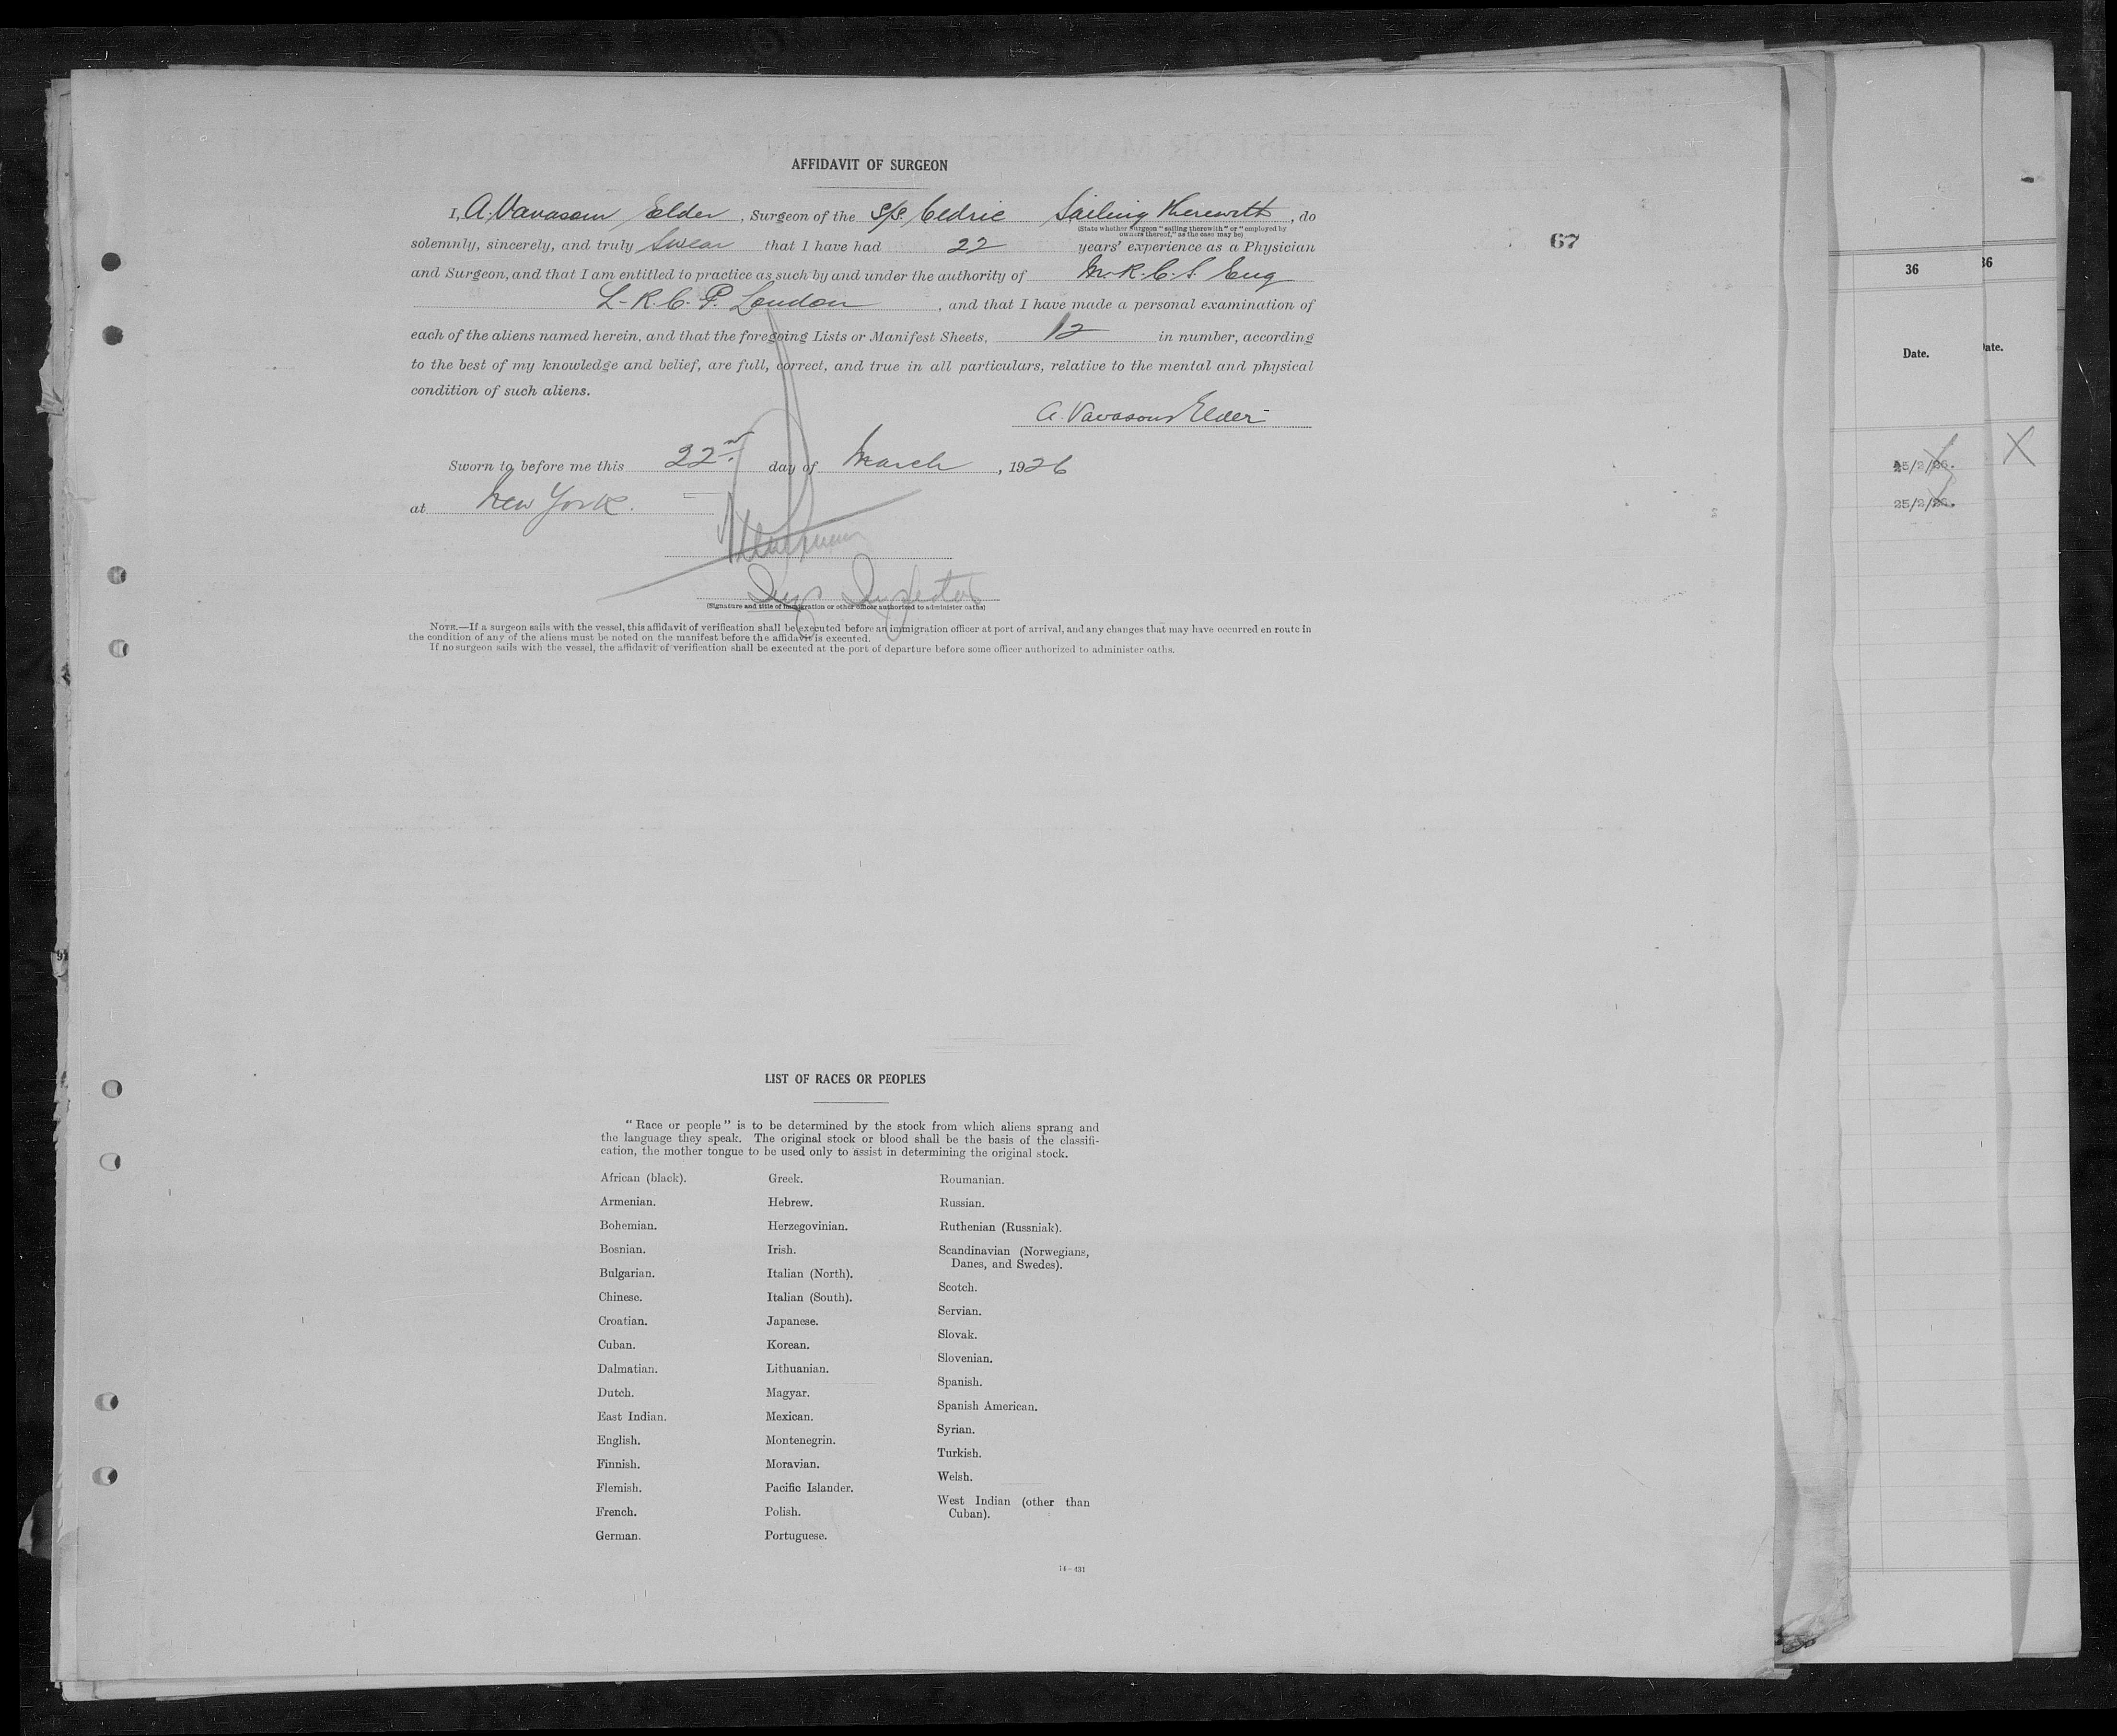 AFFIDAVIT OF SURGEON
I, A. Vavasour Elder, Surgeon of the S/S. Cedric Sailing therewith, do
(State whether Surgeon "sailing therewith" or "employed by
owners thereof," as the case may be)
solemnly, sincerely, and truly Swear that I have had 22 years' experience as a Physician
67
and Surgeon, and that I am entitled to practice as such by and under the authority of M.R.C.S. Eng
L.R.C.P. London, and that I have made a personal examination of
each of the aliens named herein, and that the foregoing Lists or Manifest Sheets, 12 in number, according
to the best of my knowledge and belief, are full, correct, and true in all particulars, relative to the mental and physical
condition of such aliens.
A. Vavasour Elder
Sworn to before me this 22nd day of March, 1926
at New York.
Inspector
(Signature and title of immigration or other officer authorized to administer oaths)
NOTE.—If a surgeon sails with the vessel, this affidavit of verification shall be executed before an immigration officer at port of arrival, and any changes that may have occurred en route in
the condition of any of the aliens must be noted on the manifest before the affidavit is executed.
If no surgeon sails with the vessel, the affidavit of verification shall be executed at the port of departure before some officer authorized to administer oaths.
36
36
Date.
Date.
25/2/26.
25/2/26.
X
LIST OF RACES OR PEOPLES
"Race or people" is to be determined by the stock from which aliens sprang and
the language they speak. The original stock or blood shall be the basis of the classifi-
cation, the mother tongue to be used only to assist in determining the original stock.
African (black).
Armenian.
Bohemian.
Bosnian.
Bulgarian.
Chinese.
Croatian.
Cuban.
Dalmatian.
Dutch.
East Indian.
English.
Finnish.
Flemish.
French.
German.
Greek.
Hebrew.
Herzegovinian.
Irish.
Italian (North).
Italian (South).
Japanese.
Korean.
Lithuanian.
Magyar.
Mexican.
Montenegrin.
Moravian.
Pacific Islander.
Polish.
Portuguese.
Roumanian.
Russian.
Ruthenian (Russniak).
Scandinavian (Norwegians,
Danes, and Swedes).
Scotch.
Servian.
Slovak.
Slovenian.
Spanish.
Spanish American.
Syrian.
Turkish.
Welsh.
West Indian (other than
Cuban).
14—431